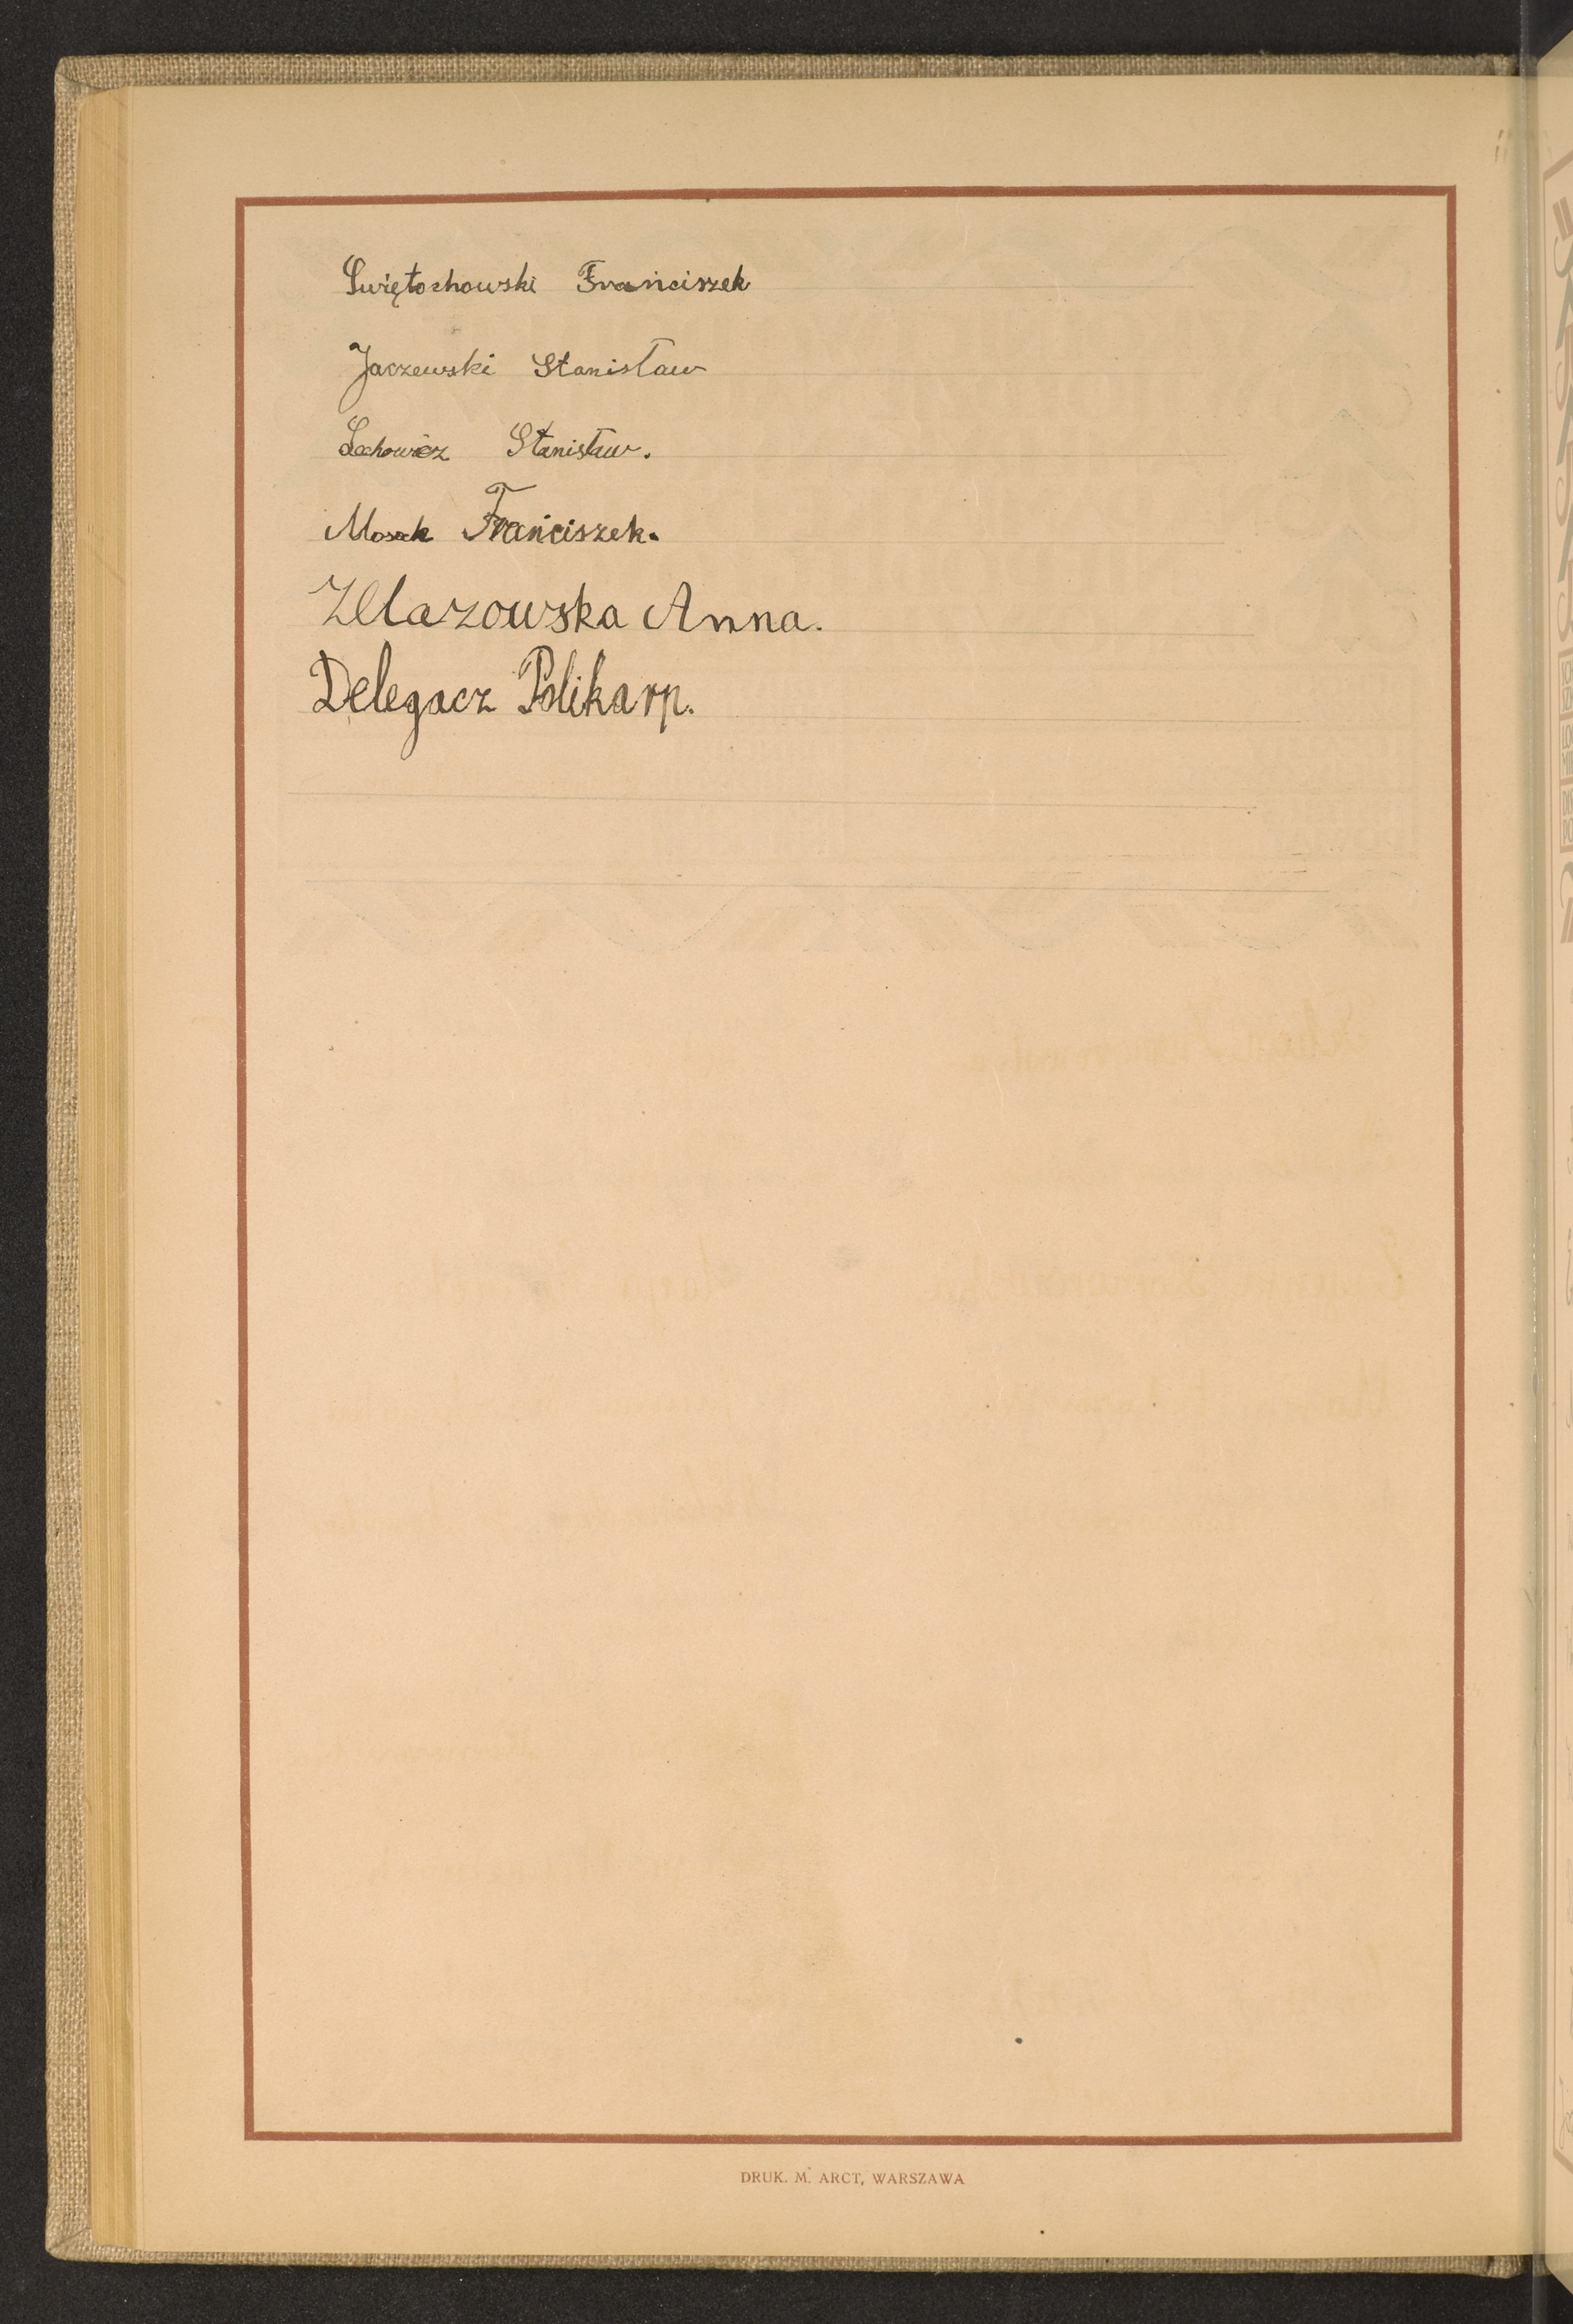 Świętochowski Franciszek
Jaczewski Stanisław
Lechowicz Stanisław.
Mosak Franciszek.
Zélazowska Anna.
Delegacz Polikarp.
DRUK. M. ARCT, WARSZAWA